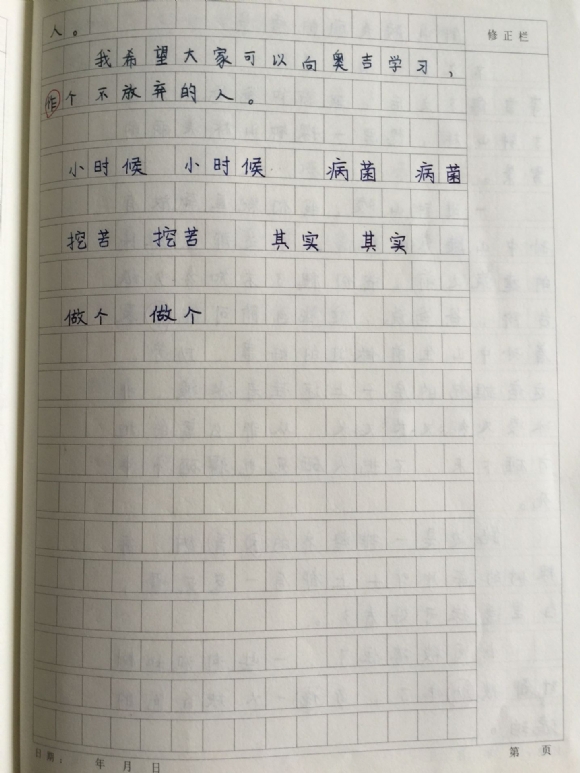 人。
修正栏
我希望大家可以向奥吉学习，
作个不放弃的人。
小时候 小时候 病菌 病菌
挖苦 挖苦 其实 其实
做个 做个
日期： 年 月 日
第 页